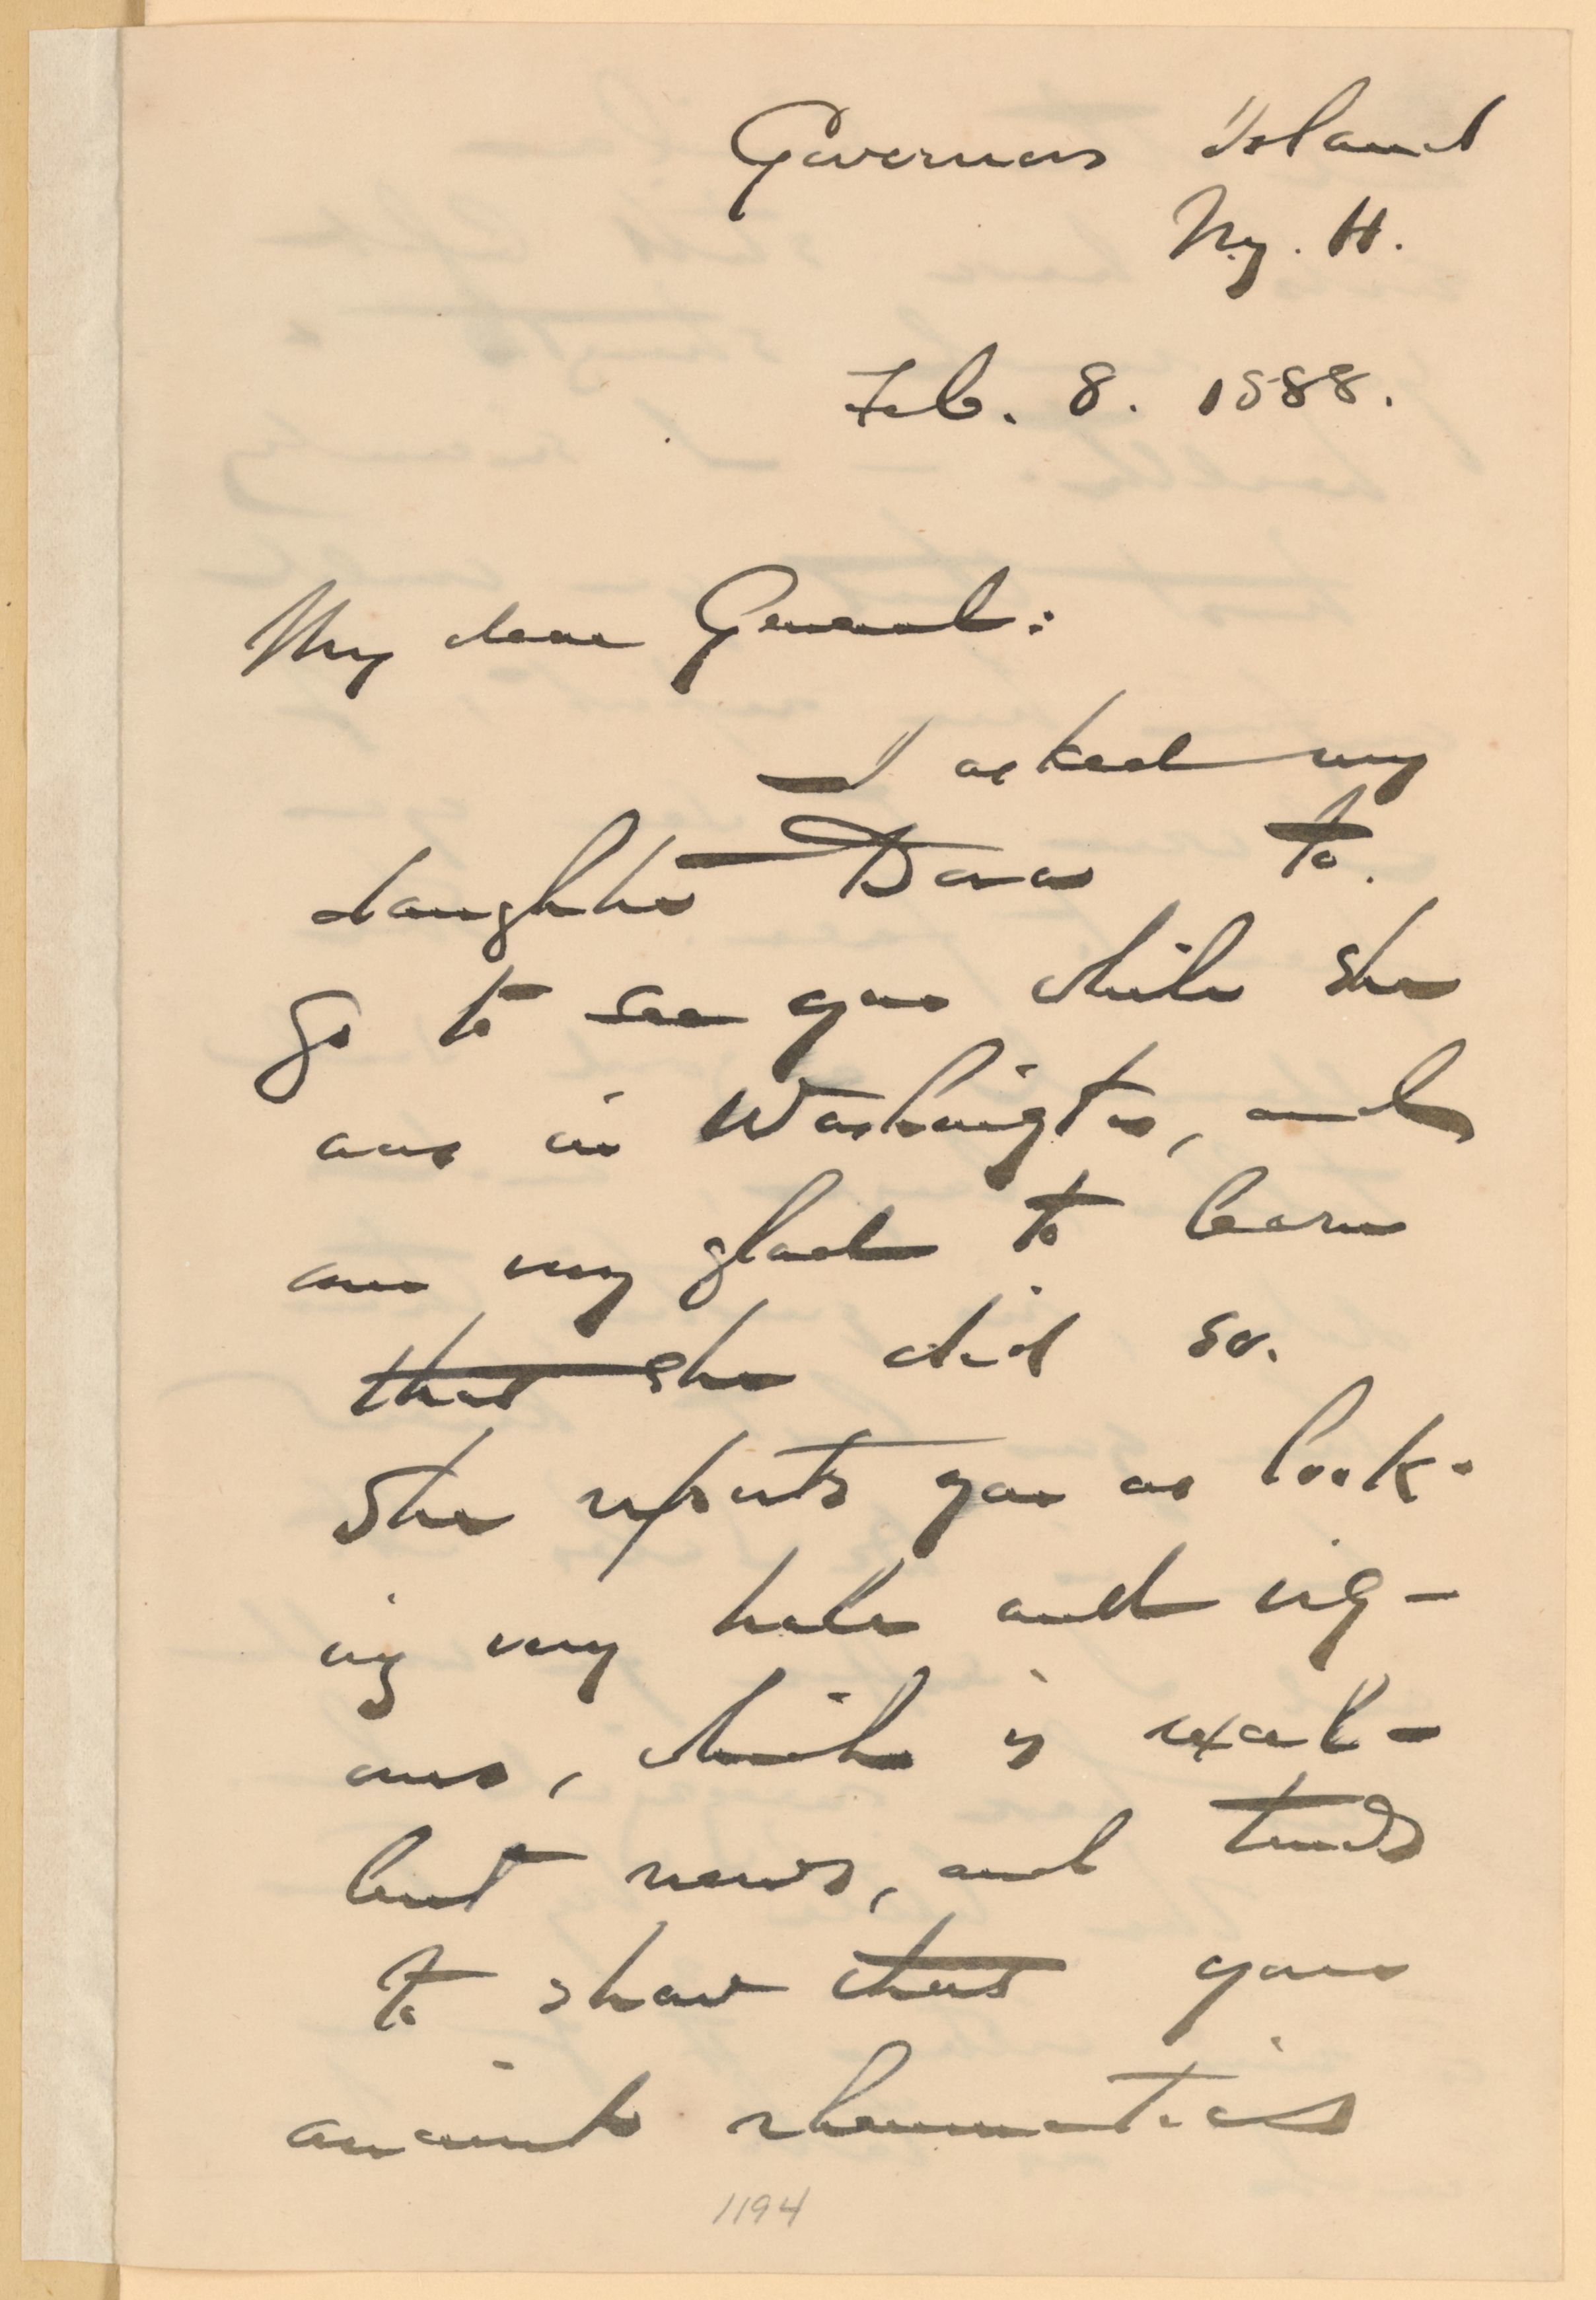 Governors Island
N.Y. H.
Feb. 8. 1888.
My dear General:
I asked my
daughter Dora to
go to see you while she
was in Washington, and
am very glad to learn
that she did so.
She reports you as look-
ing very hale and vig-
orous, which is excel-
lent news, and tends
to show that your
ancient rheumatics
1194